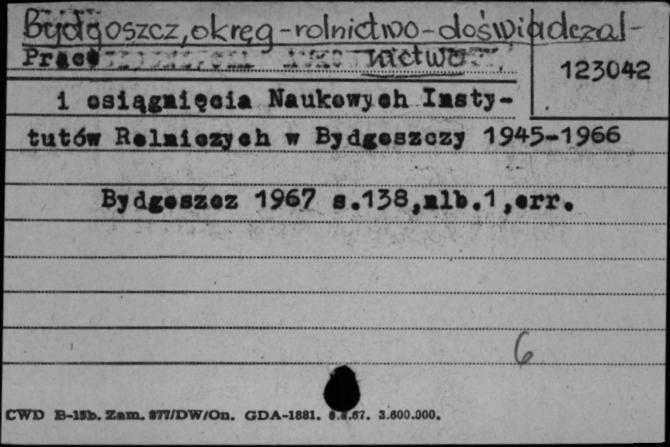 Bydgoszcz, okręg - rolnictwo - doświadczal-
nictwo
Prace
123042
i osiągnięcia Naukowych Insty-
tutów Rolniczych w Bydgoszczy 1945-1966
Bydgoszcz 1967 s.138,nlb.1,err.
6
CWD B-15b. Zam. 877/DW/On. GDA-1881. 8.8.67. 3.600.000.